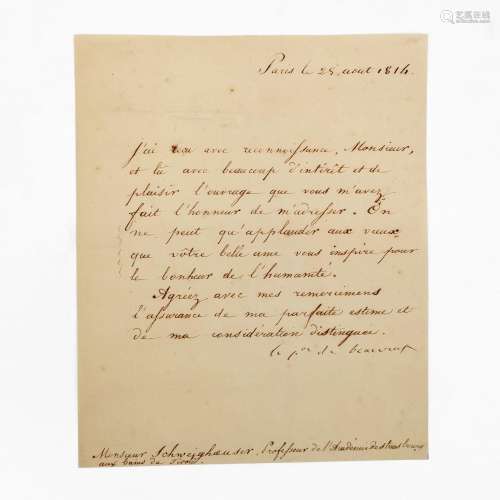 Paris le 28 aout 1814.
J'ai reçu avec reconnoissance, Monsieur,
et lu avec beaucoup d'intérêt et de
plaisir l'ouvrage que vous m'avez
fait l'honneur de m'adresser. On
ne peut qu'applaudir aux vœux
que vôtre belle ame vous inspire pour
le bonheur de l'humanité.
Agréez avec mes remercimens
l'assurance de ma parfaite estime et
de ma considération distinguée.
le p.ce de beauvau
Monsieur Schweighaeuser, Professeur de l'Académie de strasbourg
aux bains de